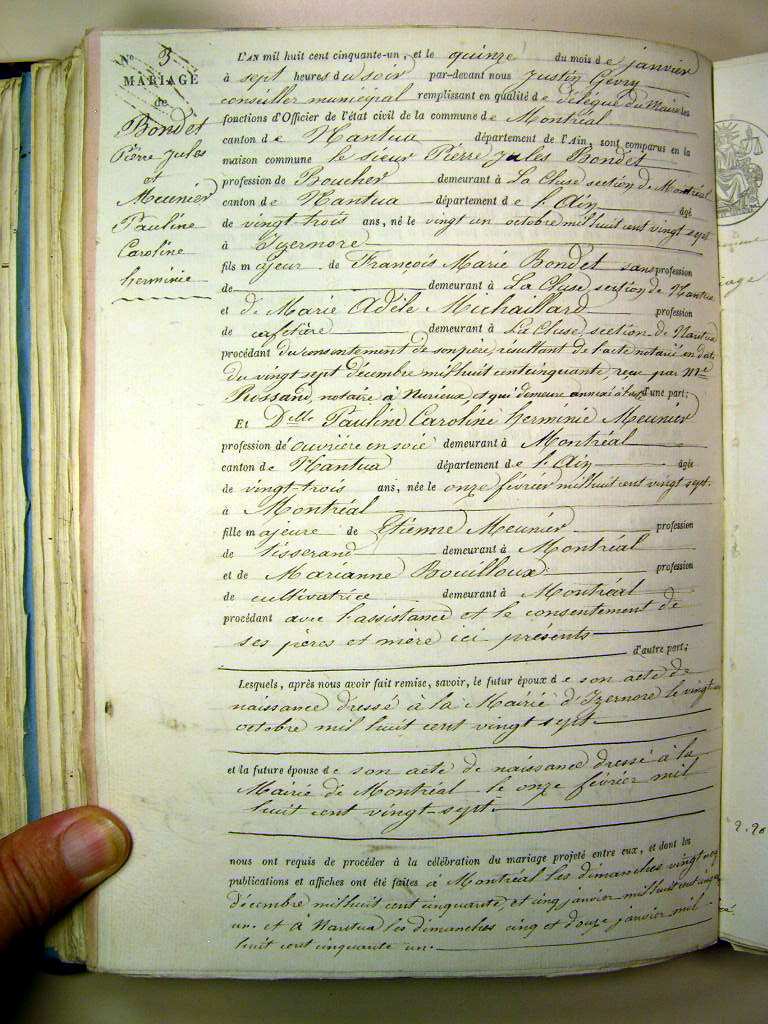 No 3
MARIAGE
de
Bondet
Pierre Jules
et
Meunier
Pauline
Caroline
herminie
L'AN mil huit cent cinquante-un, et le quinze du mois de janvier
à sept heures du soir par-devant nous Justin Gevry
conseiller municipal remplissant en qualité de délégué du Maire les
fonctions d'Officier de l'état civil de la commune de Montréal
canton de Nantua département de l'Ain, sont comparus en la
maison commune le sieur Pierre Jules Bondet
profession de Boucher demeurant à La Cluse section de Montréal
canton de Nantua département de l'Ain âgé
de vingt trois ans, né le vingt un octobre mil huit cent vingt sept
à Izernore
fils majeur de François Marie Bondet sans profession
de demeurant à La Cluse section de Nantua
et de Marie Adèle Michaillard profession
de cafetière demeurant à La Cluse section de Nantua
procédant du consentement de son père, résultant de l'acte notarié en date
du vingt sept décembre mil huit cent cinquante reçu par Me
Rossand, notaire à Nurieux et qui demeure annexé d'une part;
Et Dlle Pauline Caroline herminie Meunier
profession de ouvrière en soie demeurant à Montréal
canton de Nantua département de l'Ain âgée
de vingt-trois ans, née le onze février mil huit cent vingt sept.
à Montréal
fille majeure de Etienne Meunier profession
de tisserand demeurant à Montréal
et de Marianne Bouilloux profession
de cultivatrice demeurant à Montréal
procédant avec l'assistance et le consentement de
ses pères et mère ici présents
d'autre part;
Lesquels, après nous avoir fait remise, savoir, le futur époux de son acte de
naissance dressé à la Mairie d'Izernore le vingt un
octobre mil huit cent vingt sept.
et la future épouse de son acte de naissance dressé à la
Mairie de Montréal le onze février mil
huit cent vingt-sept.
nous ont requis de procéder à la célébration du mariage projeté entre eux, et dont les
publications et affiches ont été faites à Montréal les dimanches vingt neuf
décembre mil huit cent cinquante, et cinq janvier mil huit cent cinquante
un. et à Nantua les dimanches cinq et douze janvier mil
huit cent cinquante un.